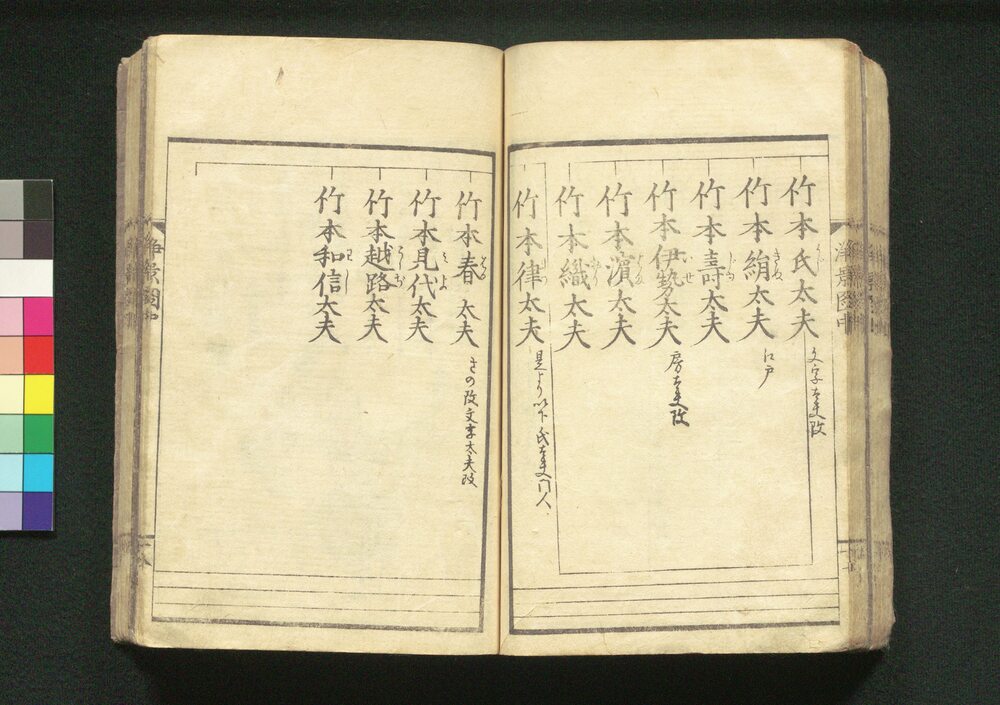 竹本氏太夫 文字太夫改
竹本絹太夫 江戸
竹本壽太夫
竹本伊勢太夫 房太夫改
竹本濱太夫
竹本織太夫
竹本律太夫 是より以下氏太夫門人
竹本春太夫 さの改文字太夫改
竹本見代太夫
竹本越路太夫
竹本和信太夫